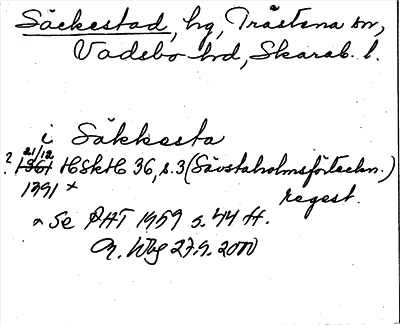 Säckestad, hg, Trästena sn,
Vadsbo hd, Skarab. l.
i Säkkesta
21/12
? 1361 HSkH 36, s. 3 (Sävstaholmsförteckn.)
1391 x regest.
x Se PHT 1959 s. 44 ff.
27.9.2000